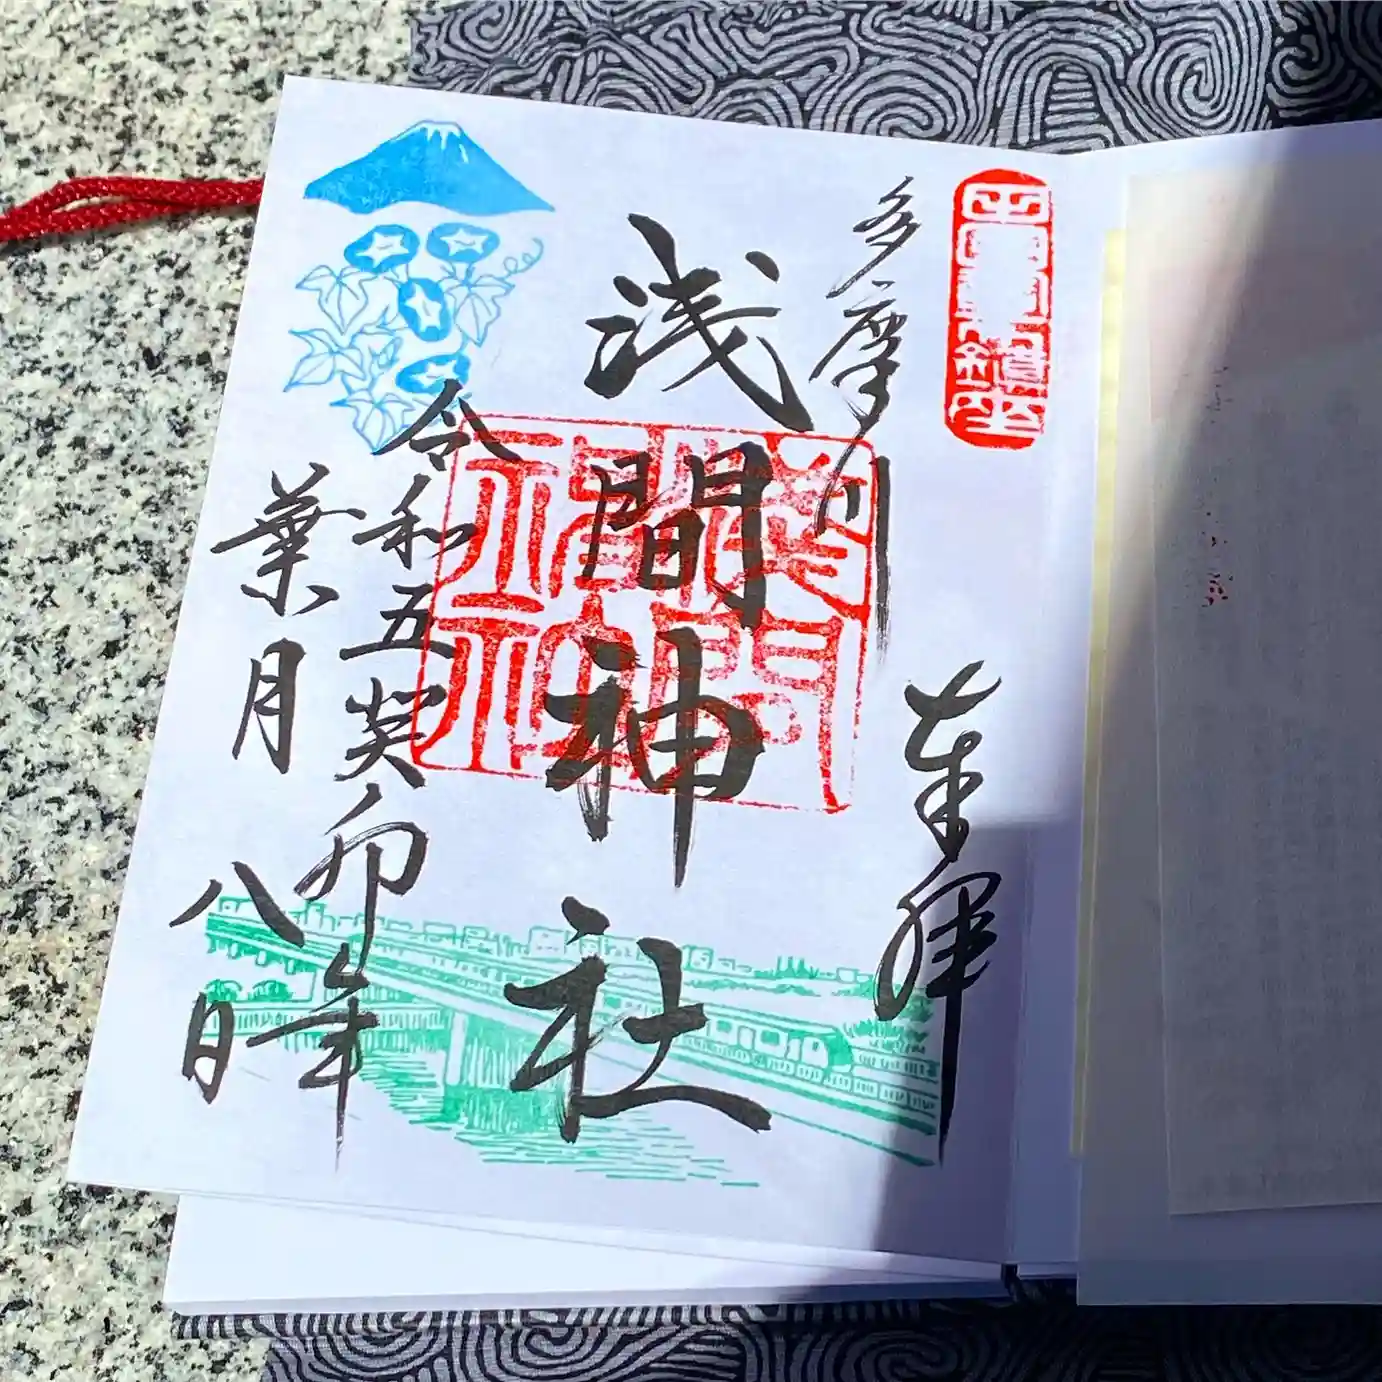 奉拝
多摩川
浅間神社
令和五癸卯年
葉月八日
浅間神社